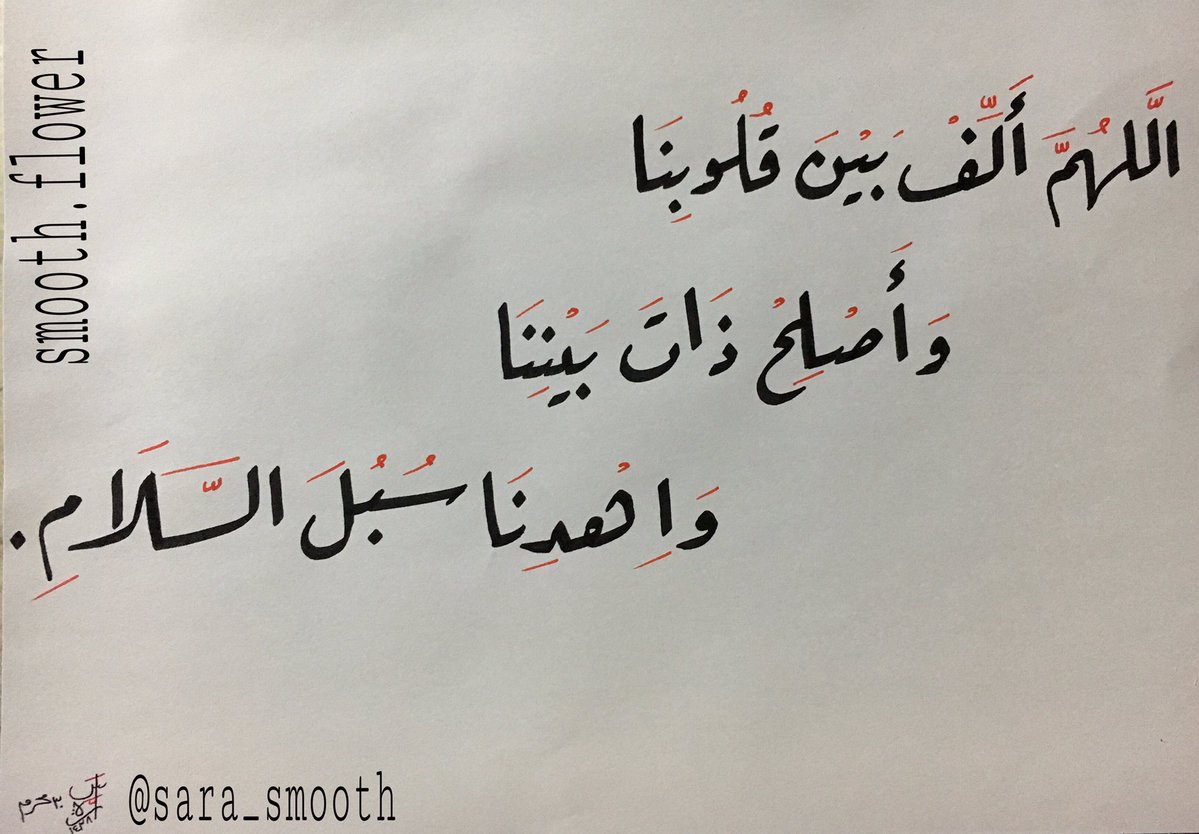 اللَّهُمَّ أَلِّفْ بَيْنَ قُلُوبِنَا
وَأَصْلِحْ ذَاتَ بَيْنِنَا
وَاِهْدِنَا سُبُلَ السَّلَامِ.
smooth.flower
@sara_smooth